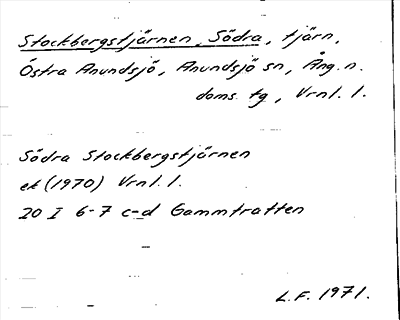 Stockbergstjärnen, Södra, tjärn,
Östra Anundsjö, Anundsjö sn, Ång. n.
doms. tg, Vrnl. l.
Södra Stockbergstjärnen
ek (1970) Vrnl. l.
20 I 6-7 c-d Gammtratten
L.F. 1971.